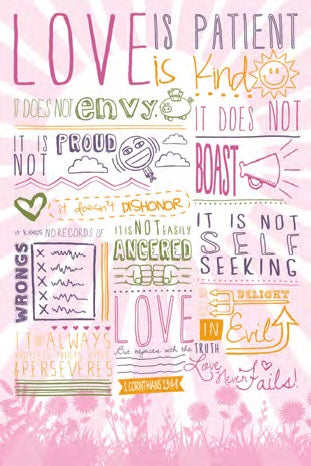 LOVE IS PATIENT
is Kind.
IT DOES NOT envy.
IT DOES NOT
BOAST
IT IS NOT PROUD
it doesn't DISHONOR
IT IS NOT
SELF
SEEKING
it keeps NO RECORDS OF
WRONGS
IT IS NOT EASILY
ANGERED
LOVE
DELIGHT
IN Evil
But rejoices with the TRUTH
IT ALWAYS
PROTECTS TRUSTS HOPES
& PERSEVERES
Love Never Fails!
1 CORINTHIANS 13:4-8